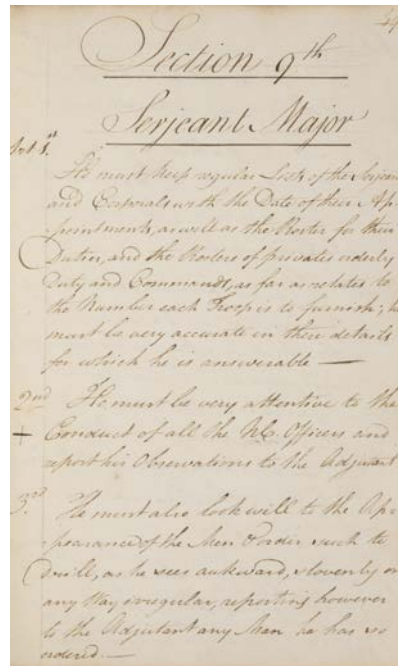 49
Section 9th
Serjeant Major
Art 1st.
He must keep regular Lists of the Serjean
and Corporals with the Date of their Ap-
pointments, as well as the Roster for their
Duties, and the Rosters of privates orderly
Duty and Commands, as far as relates to
the Number each Troop is to furnish; he
must be very accurate in these details
for which he is answerable —
2nd He must be very attentive to the
+ Conduct of all the NC. Officers and
report his Observations to the Adjutant
3rd He must also look well to the Ap-
pearance of the Men & order such to
Drill, as he sees aukward, slovenly or
any Way irregular, reporting however
to the Adjutant any Man he has so
ordered. —